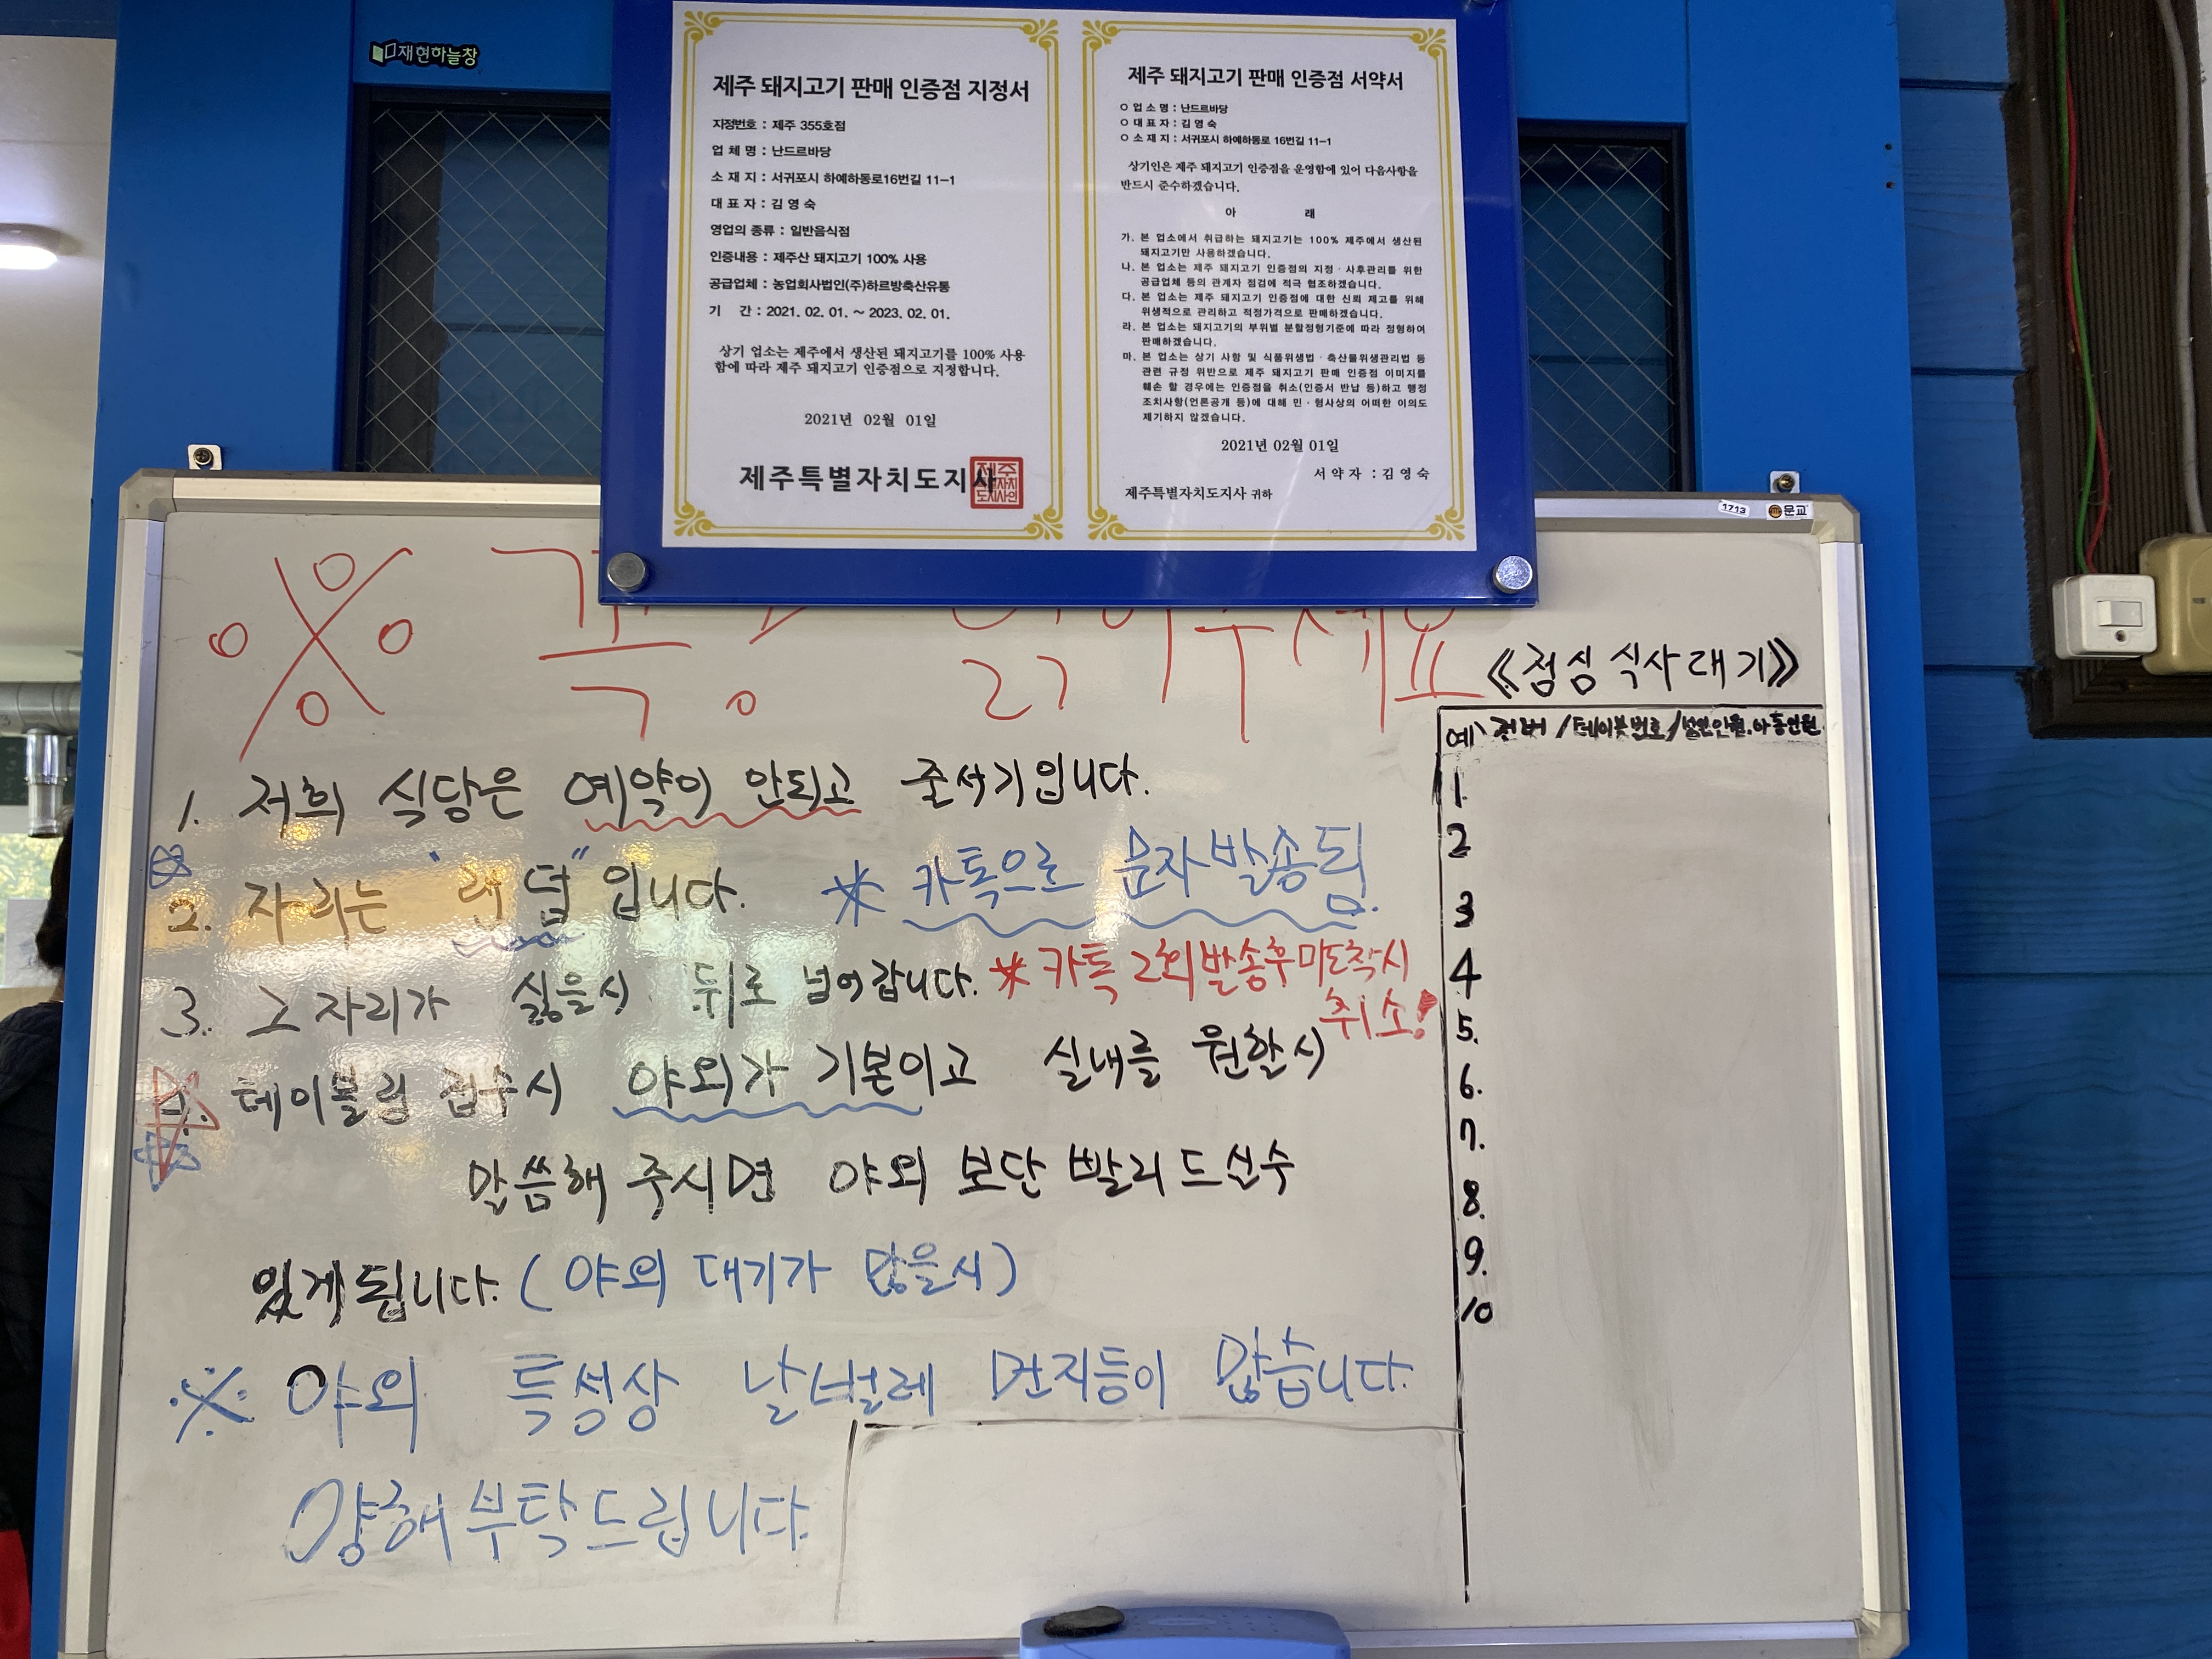 재현하늘창
제주 돼지고기 판매 인증점 지정서
지정번호 : 제주 355호점
업 체 명 : 난드르바당
소 재 지 : 서귀포시 하예하동로16번길 11-1
대 표 자 : 김 영 숙
영업의 종류 : 일반음식점
인증내용 : 제주산 돼지고기 100% 사용
공급업체 : 농업회사법인(주)하르방축산유통
기 간 : 2021. 02. 01. ~ 2023. 02. 01.
상기 업소는 제주에서 생산된 돼지고기를 100% 사용
함에 따라 제주 돼지고기 인증점으로 지정합니다.
2021년 02월 01일
제주특별자치도지사
제주 돼지고기 판매 인증점 서약서
○ 업 소 명 : 난드르바당
○ 대 표 자 : 김 영 숙
○ 소 재 지 : 서귀포시 하예하동로 16번길 11-1
상기인은 제주 돼지고기 인증점을 운영함에 있어 다음사항을
반드시 준수하겠습니다.
아 래
가. 본 업소에서 취급하는 돼지고기는 100% 제주에서 생산된
돼지고기만 사용하겠습니다.
나. 본 업소는 제주 돼지고기 인증점의 지정·사후관리를 위한
공급업체 등의 관계자 점검에 적극 협조하겠습니다.
다. 본 업소는 제주 돼지고기 인증점에 대한 신뢰 제고를 위해
위생적으로 관리하고 적정가격으로 판매하겠습니다.
라. 본 업소는 돼지고기의 부위별 분할정형기준에 따라 정형하여
판매하겠습니다.
마. 본 업소는 상기 사항 및 식품위생법·축산물위생관리법 등
관련 규정 위반으로 제주 돼지고기 판매 인증점 이미지를
훼손 할 경우에는 인증점을 취소(인증서 반납 등)하고 행정
조치사항(언론공개 등)에 대해 민·형사상의 어떠한 이의도
제기하지 않겠습니다.
2021년 02월 01일
서 약 자 : 김 영 숙
제주특별자치도지사 귀하
1713 문교
※ 읽어주세요
1. 저희 식당은 예약이 안되고 줄서기입니다.
2. 자리는 "랜덤" 입니다. ※ 카톡으로 문자발송됨.
3. 그 자리가 싫을시 뒤로 넘어갑니다. ※ 카톡 2회발송후 미도착시
취소!
4. 테이블링 접수시 야외가 기본이고 실내를 원할시
말씀해 주시면 야외 보단 빨리 드실수
있게 됩니다. (야외 대기가 많을시)
※ 야외 특성상 날벌레 먼지등이 많습니다.
양해 부탁드립니다.
《점심 식사 대기》
예) 전번 / 테이블번호 / 성인인원.아동인원
1.
2
3
4
5.
6.
7.
8.
9.
10